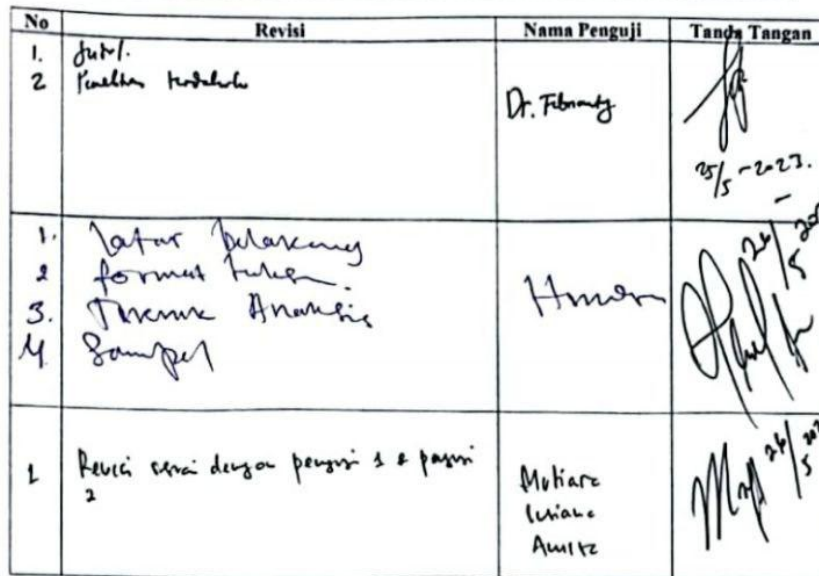 No Revisi Nama Penguji Tanda Tangan
1. Judul.
2 Penelitian terdahulu
Dr. Febrianty
25/5-2023.
1. Latar belakang
2 format tulisan
3. Analisis
4 Sampel
26/5
1 Revisi sesuai dengan penguji 1 & penguji
2
Mutiara
Lusiana
Annisa
26/5